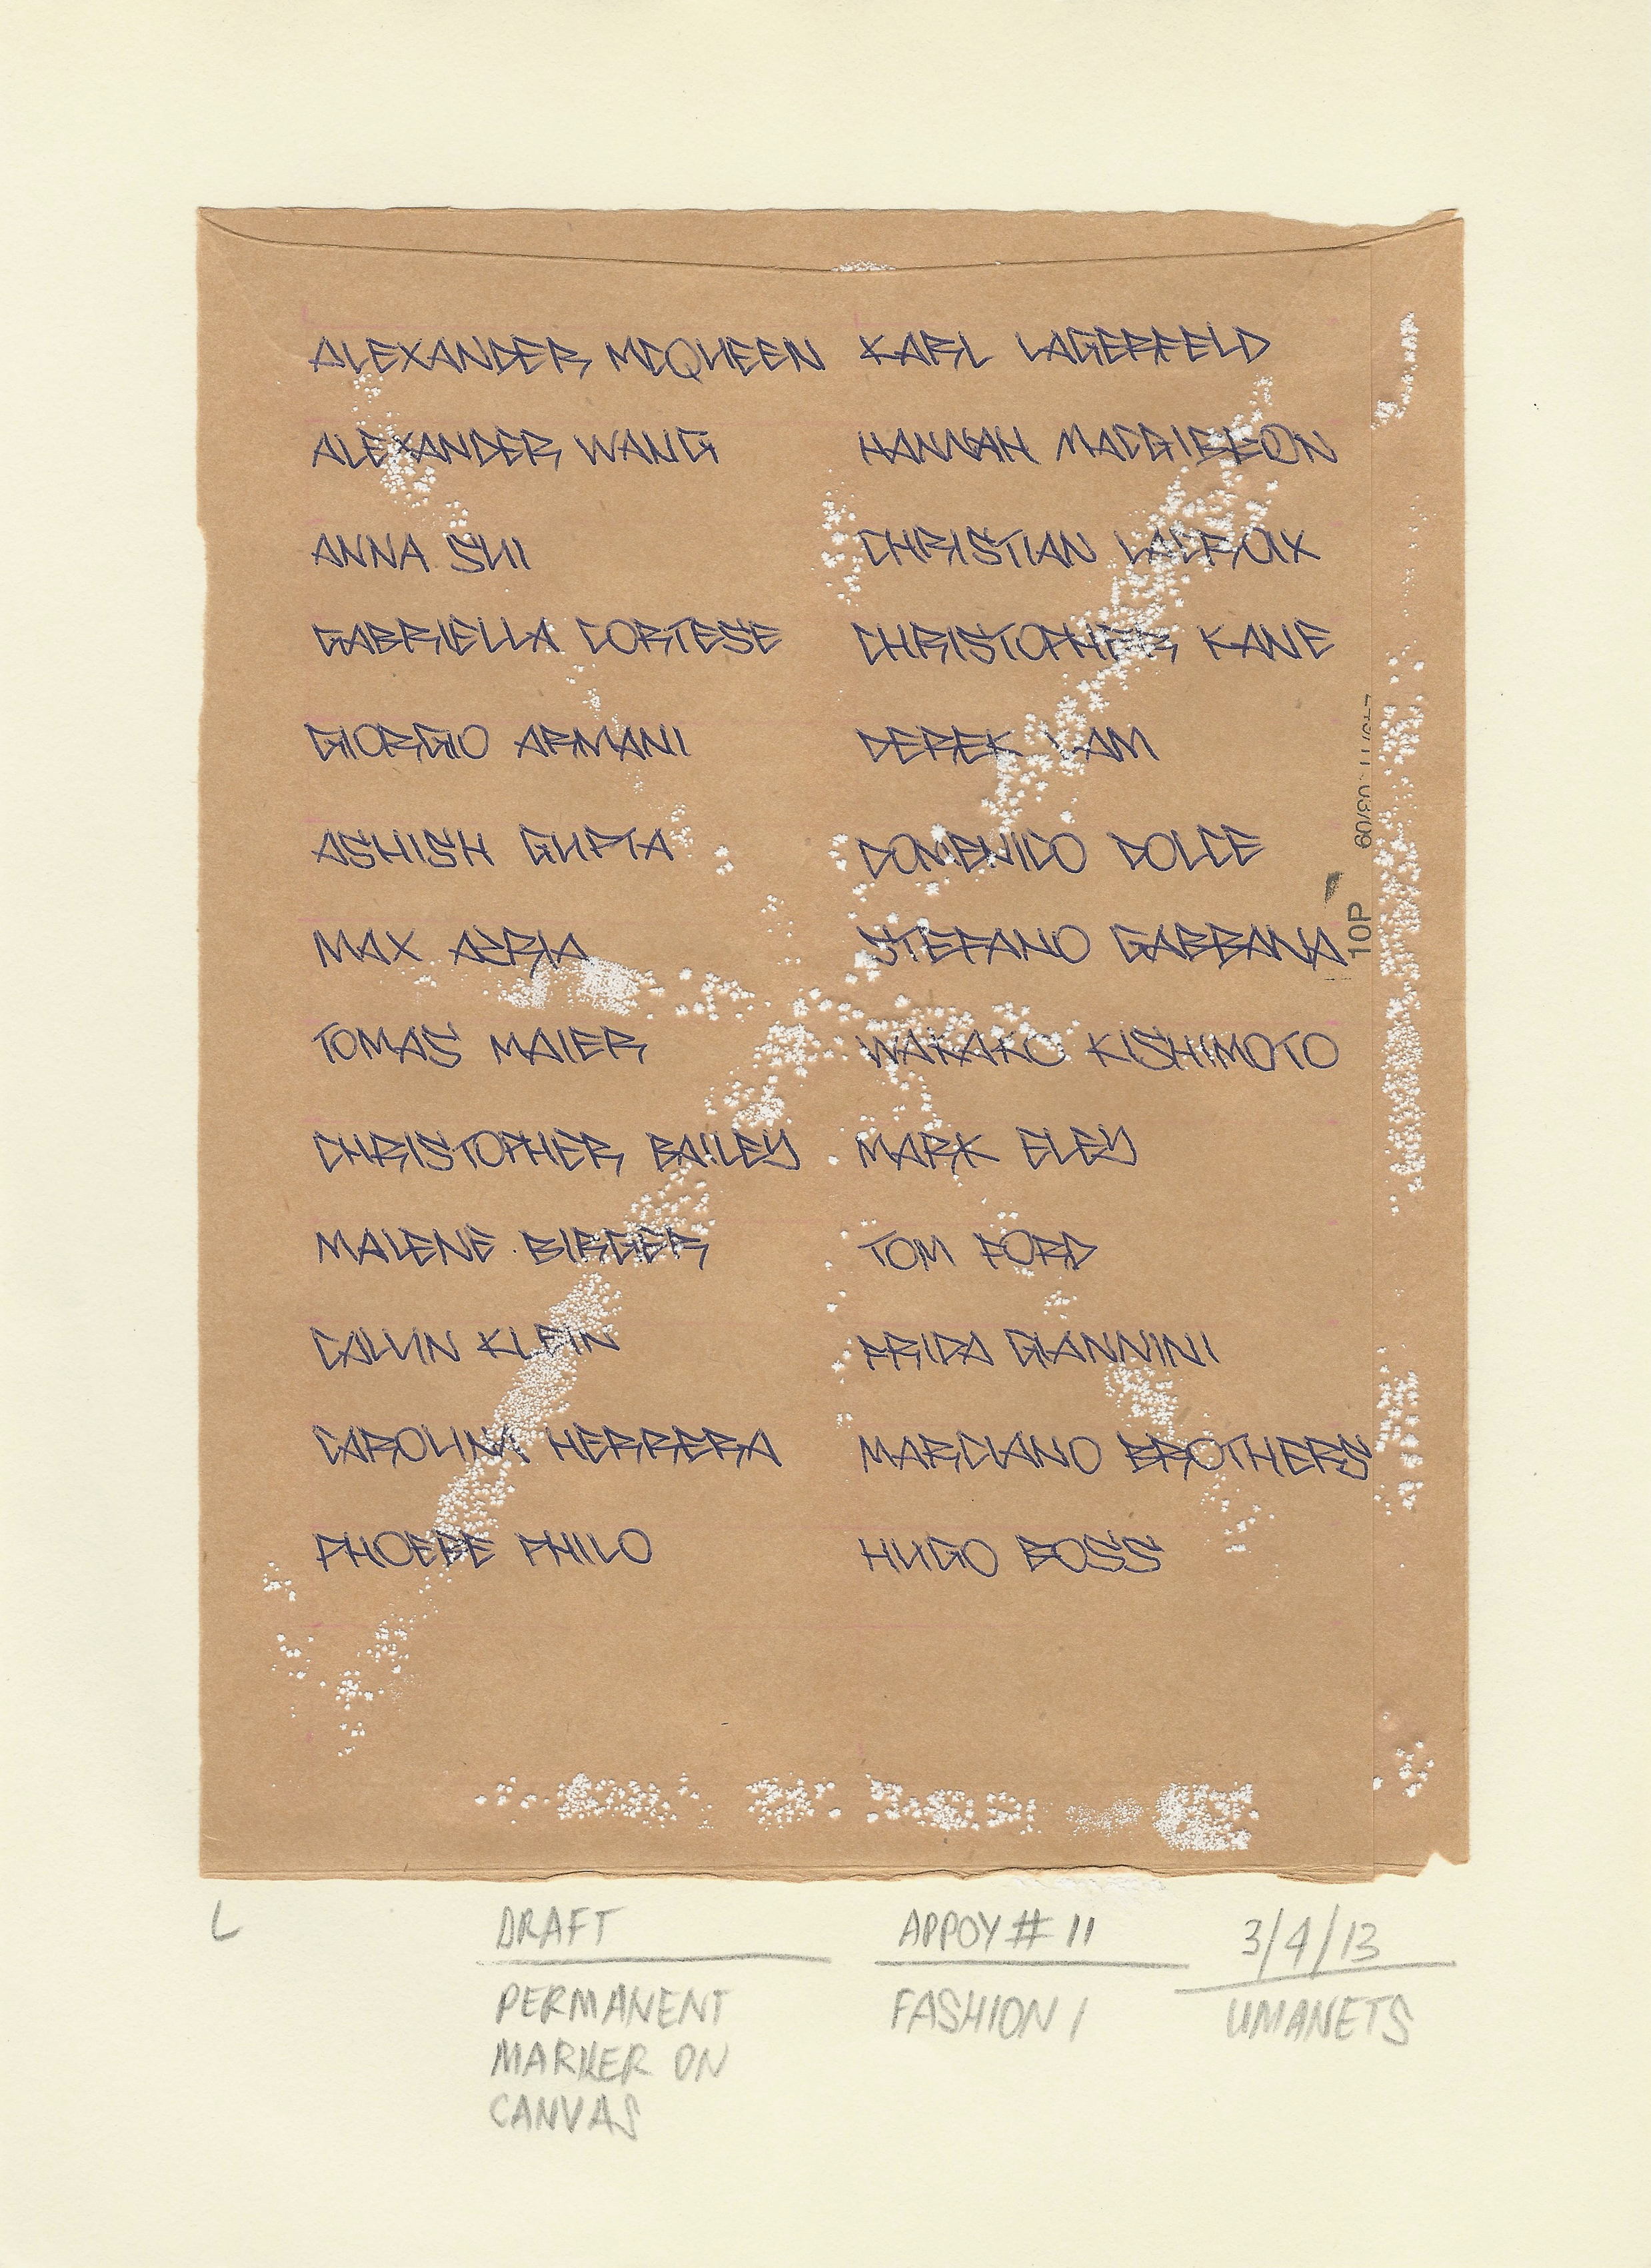 ALEXANDER MCQUEEN
ALEXANDER WANG
ANNA SUI
GABRIELLA CORTESE
GIORGIO ARMANI
ASHISH GUPTA
MAX AZRIA
TOMAS MAIER
CHRISTOPHER BAILEY
MALENE BIRGER
CALVIN KLEIN
CAROLINA HERRERA
PHOEBE PHILO
KARL LAGERFELD
HANNAH MACGIBBON
CHRISTIAN LACROIX
CHRISTOPHER KANE
DEREK LAM
DOMENICO DOLCE
STEFANO GABBANA
WAKAKO KISHIMOTO
MARK ELEY
TOM FORD
FRIDA GIANNINI
MARCIANO BROTHERS
HUGO BOSS
10P 60/80
L
DRAFT
PERMANENT
MARKER ON
CANVAS
APPOY # 11
FASHION 1
3/4/13
UMANETS